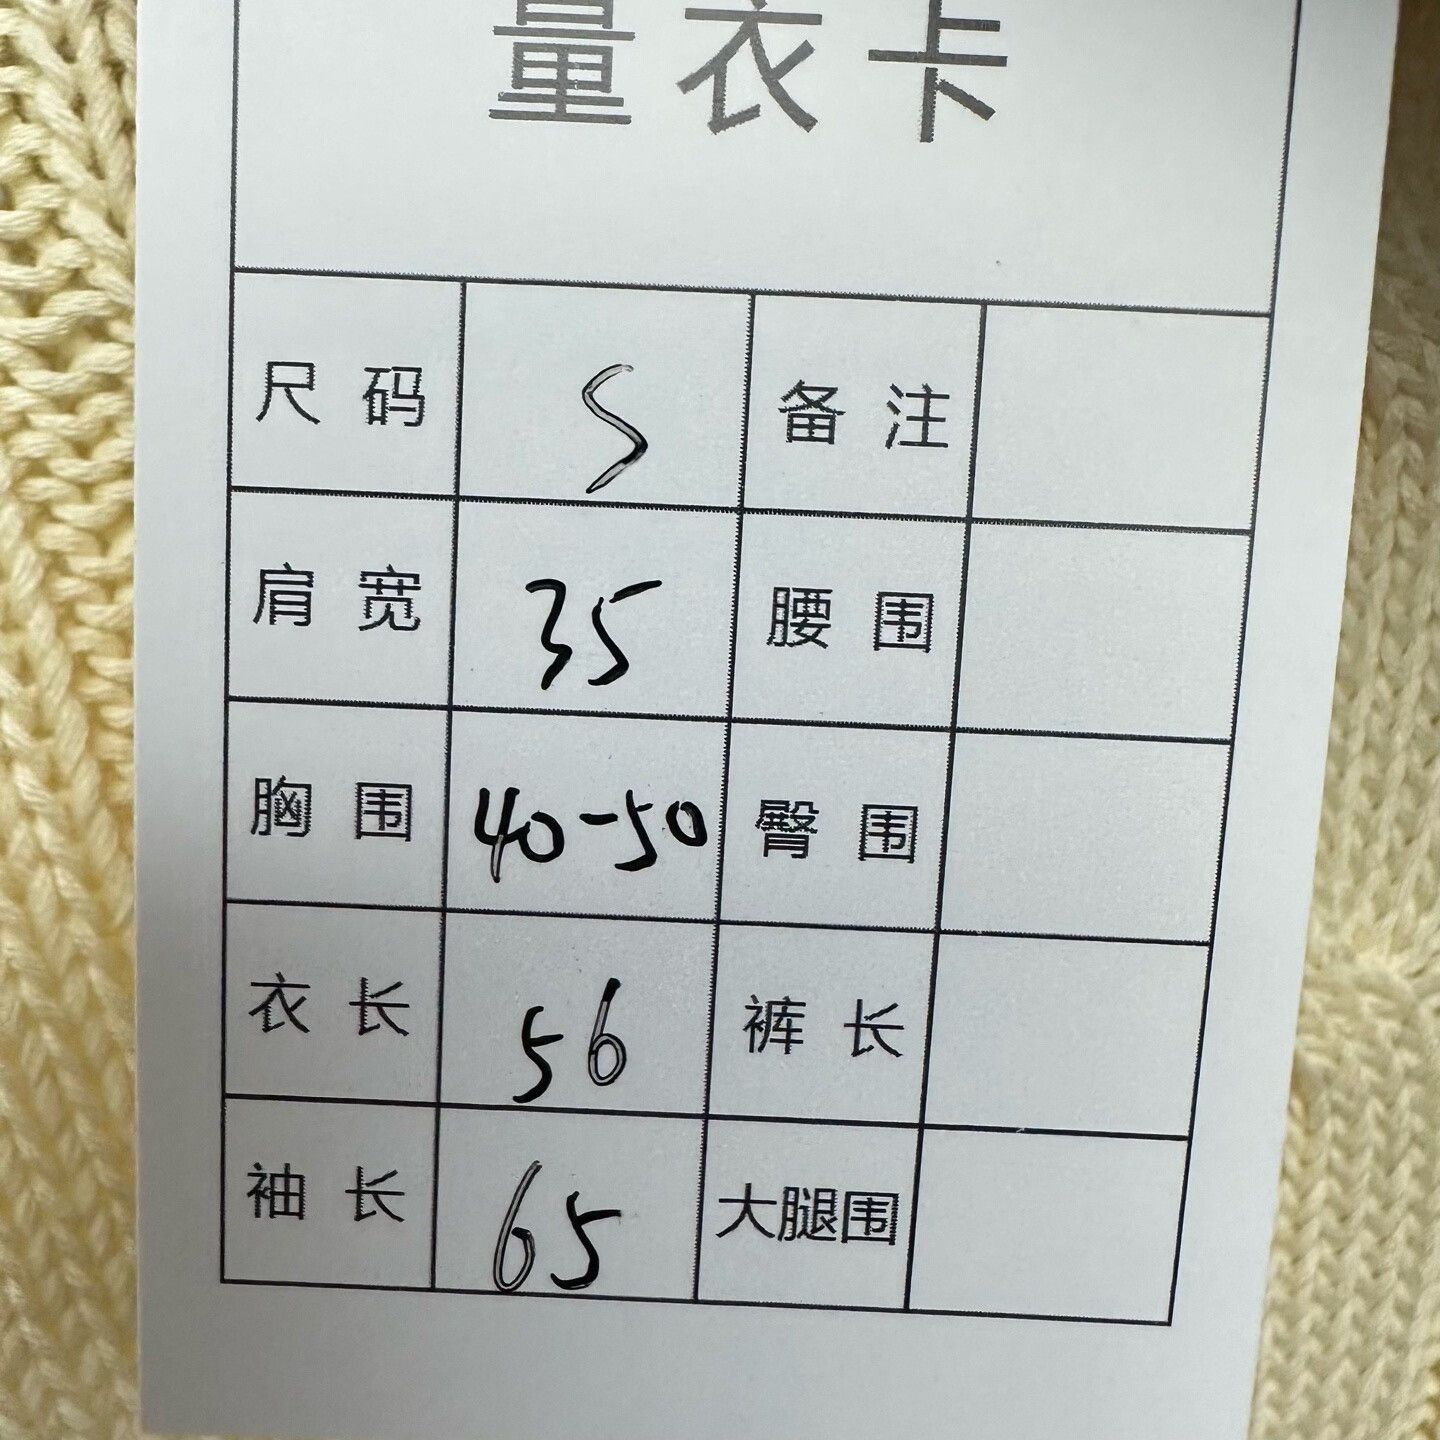 量衣卡
尺码 S 备注
肩宽 35 腰围
胸围 40-50 臀围
衣长 56 裤长
袖长 65 大腿围